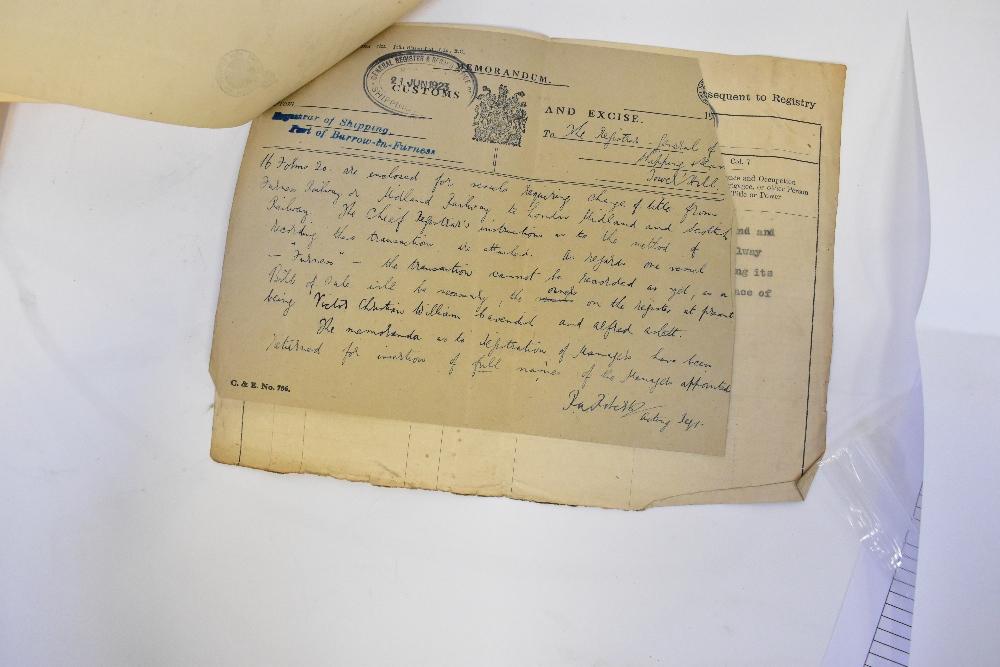 MEMORANDUM.
GENERAL REGISTER & RECORD OFFICE
21 JUN 1923
SHIPPING
CUSTOMS AND EXCISE.
From
Registrar of Shipping,
Port of Barrow-in-Furness
To The Registrar General of
Shipping
Tower Hill.
16 Forms 20. are enclosed for vessels requiring change of title from
Furness Railway or Midland Railway, to London Midland and Scottish
Railway. The Chief Registrar's instructions as to the method of
recording this transaction are attached. As regards one vessel
- "Furness" - the transaction cannot be recorded as yet, as a
Bill of Sale will be necessary, the owners on the register at present
being Victor Christian William Cavendish and Alfred Aslett.
The memoranda as to registration of Managers have been
returned for insertion of full names of the Managers appointed
Acting Regr.
C. & E. No. 786.
sequent to Registry
Col. 7
nce and Occupation
or other Person
Title or Power
nd and
lway
ng its
ace of